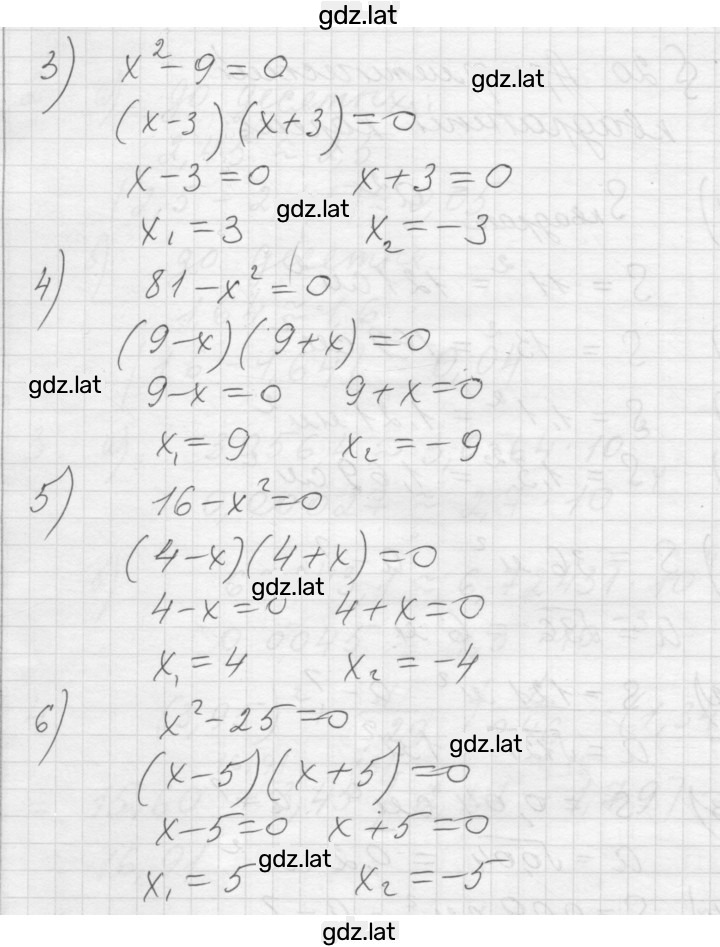 gdz.lat
3) x² - 9 = 0
gdz.lat
(x-3)(x+3) = 0
x - 3 = 0 x + 3 = 0
gdz.lat
x₁ = 3 x₂ = -3
4) 81 - x² = 0
(9-x)(9+x) = 0
gdz.lat
9-x = 0 9+x = 0
x₁ = 9 x₂ = -9
5) 16 - x² = 0
(4-x)(4+x) = 0
gdz.lat
4-x = 0 4+x = 0
x₁ = 4 x₂ = -4
6) x² - 25 = 0
gdz.lat
(x-5)(x+5) = 0
x-5 = 0 x+5 = 0
gdz.lat
x₁ = 5 x₂ = -5
gdz.lat